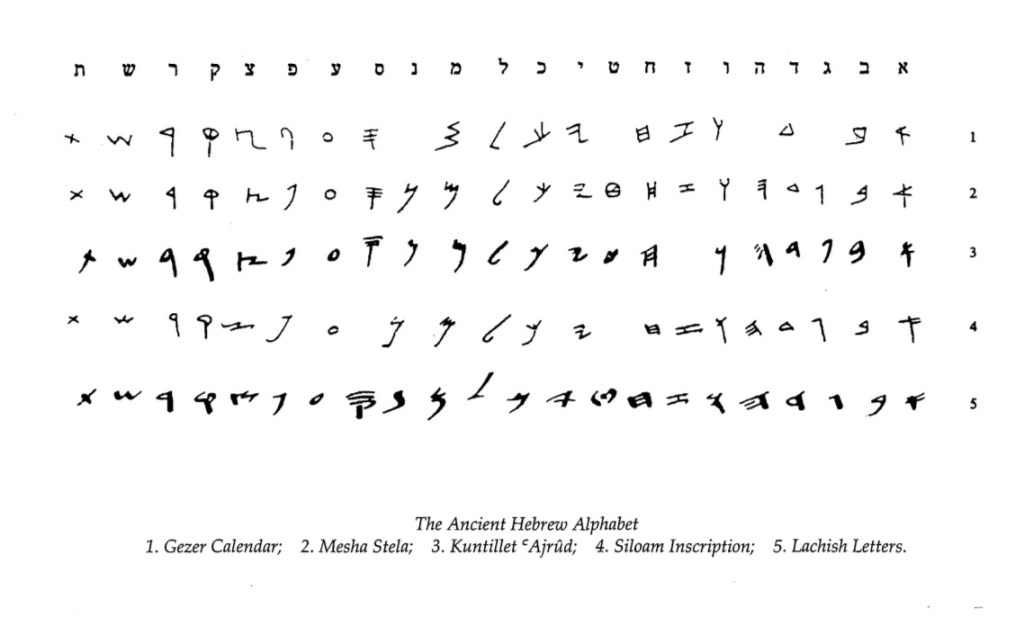 א ב ג ד ה ו ז ח ט י כ ל מ נ ס ע פ צ ק ר ש ת
1 𐤀 𐤁 𐤃 𐤅 𐤆 𐤇 𐤉 𐤊 𐤋 𐤌 𐤎 𐤏 𐤐 𐤑 𐤒 𐤓 𐤔 𐤕
2 𐤀 𐤁 𐤂 𐤃 𐤄 𐤅 𐤆 𐤇 𐤈 𐤉 𐤊 𐤋 𐤌 𐤍 𐤎 𐤏 𐤐 𐤑 𐤒 𐤓 𐤔 𐤕
3 𐤀 𐤁 𐤂 𐤃 𐤄 𐤅 𐤇 𐤈 𐤉 𐤊 𐤋 𐤌 𐤍 𐤎 𐤏 𐤐 𐤑 𐤒 𐤓 𐤔 𐤕
4 𐤀 𐤁 𐤂 𐤃 𐤄 𐤅 𐤆 𐤇 𐤉 𐤊 𐤋 𐤌 𐤍 𐤏 𐤐 𐤑 𐤒 𐤓 𐤔 𐤕
5 𐤀 𐤁 𐤂 𐤃 𐤄 𐤅 𐤆 𐤇 𐤈 𐤉 𐤊 𐤋 𐤌 𐤍 𐤎 𐤏 𐤐 𐤑 𐤒 𐤓 𐤔 𐤕
The Ancient Hebrew Alphabet
1. Gezer Calendar; 2. Mesha Stela; 3. Kuntillet ʿAjrûd; 4. Siloam Inscription; 5. Lachish Letters.